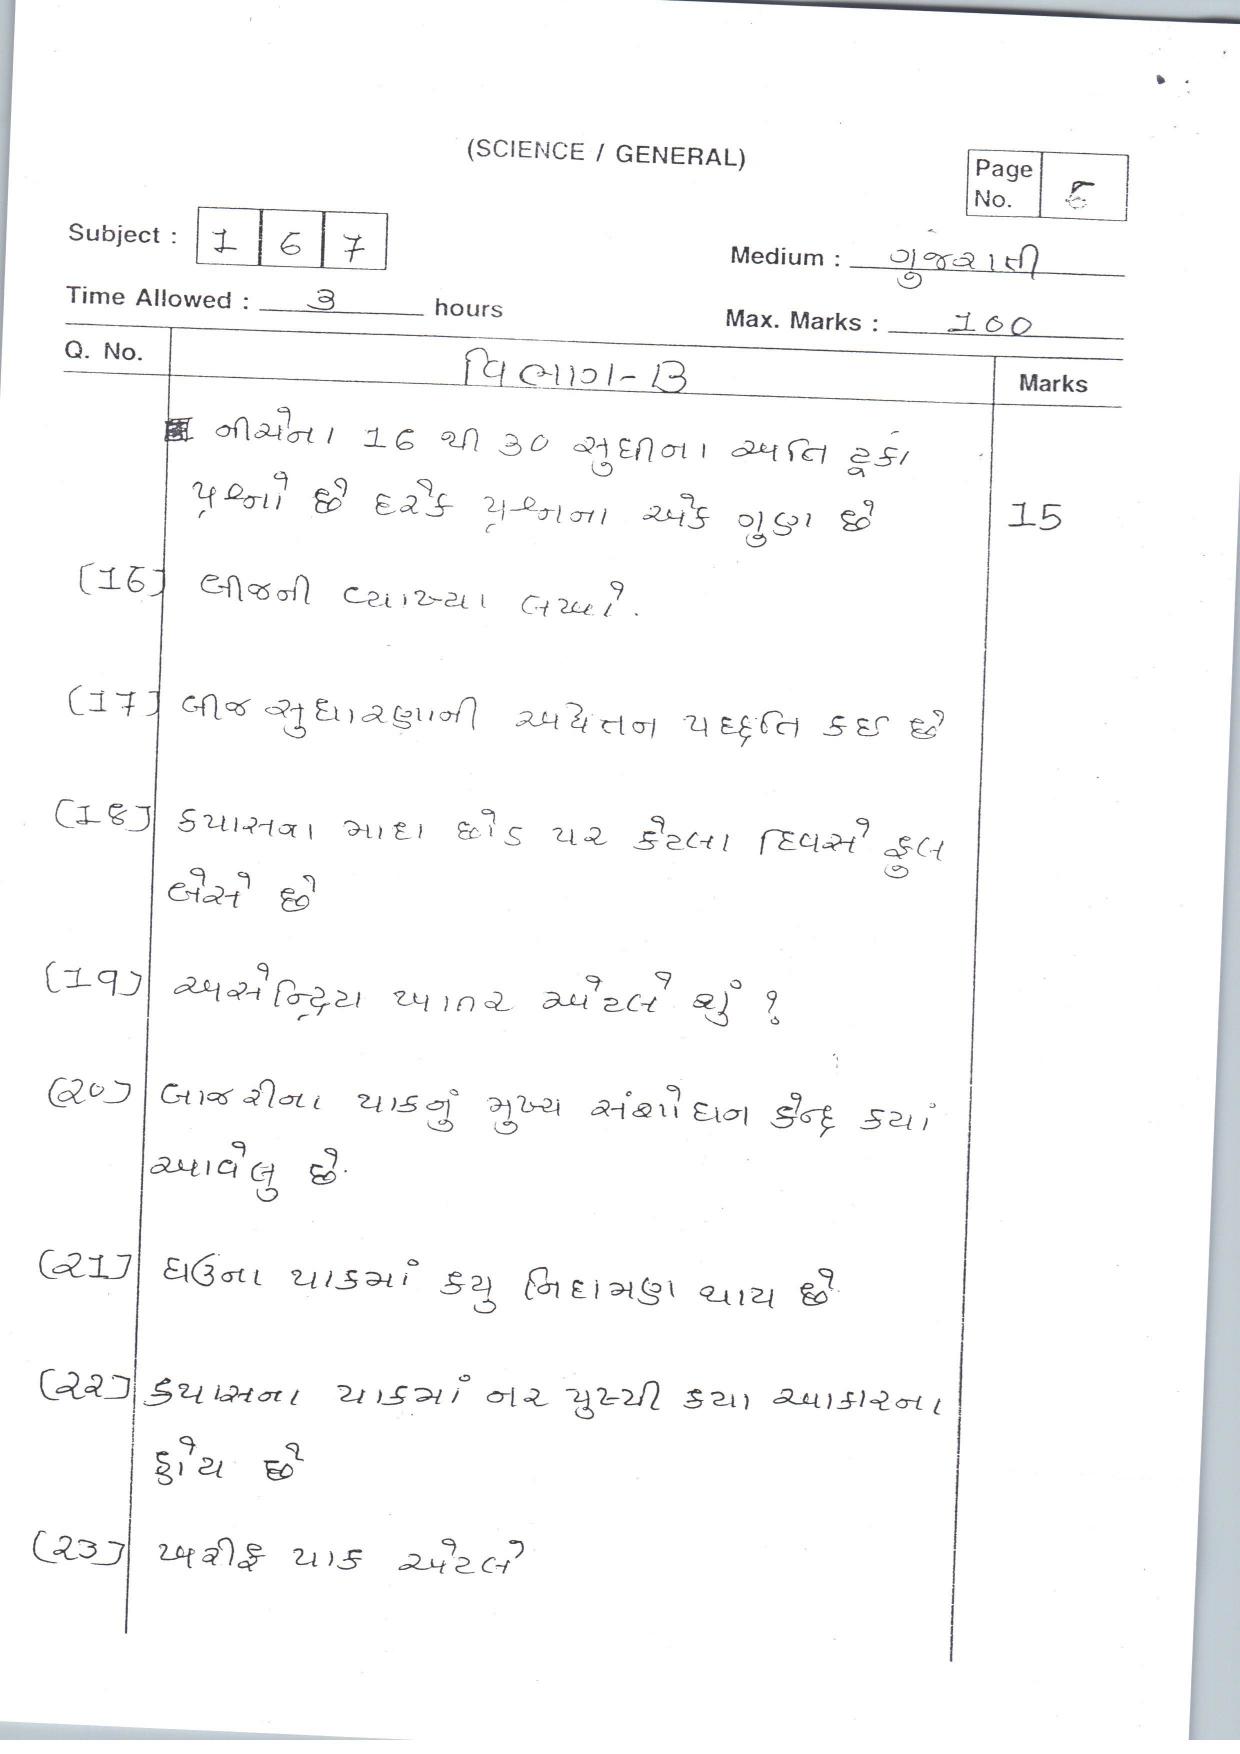 (SCIENCE / GENERAL)
Page No.
Subject : 1 6 7
Medium : ગુજરાતી
Time Allowed : 3 hours
Max. Marks : 100
Q. No. વિભાગ-B Marks
નીચેના 16 થી 30 સુધીના અતિ ટૂંકા
પ્રશ્નો છે દરેક પ્રશ્નના એક ગુણ છે 15
(16) બીજની વ્યાખ્યા લખો.
(17) બીજ સુધારણાની અધેતન પદ્ધતિ કઈ છે
(18) કપાસના માદા છોડ પર કેટલા દિવસે ફુલ
બેસે છે
(19) અસેન્દ્રિય ખાતર એટલે શું ?
(20) બાજરીના પાકનું મુખ્ય સંશોધન કેન્દ્ર કયાં
આવેલુ છે.
(21) ઘઉંના પાકમાં કયુ નિદામણ થાય છે
(22) કપાસના પાકમાં નર પુષ્પી કયા આકારના
હોય છે
(23) ખરીફ પાક એટલે